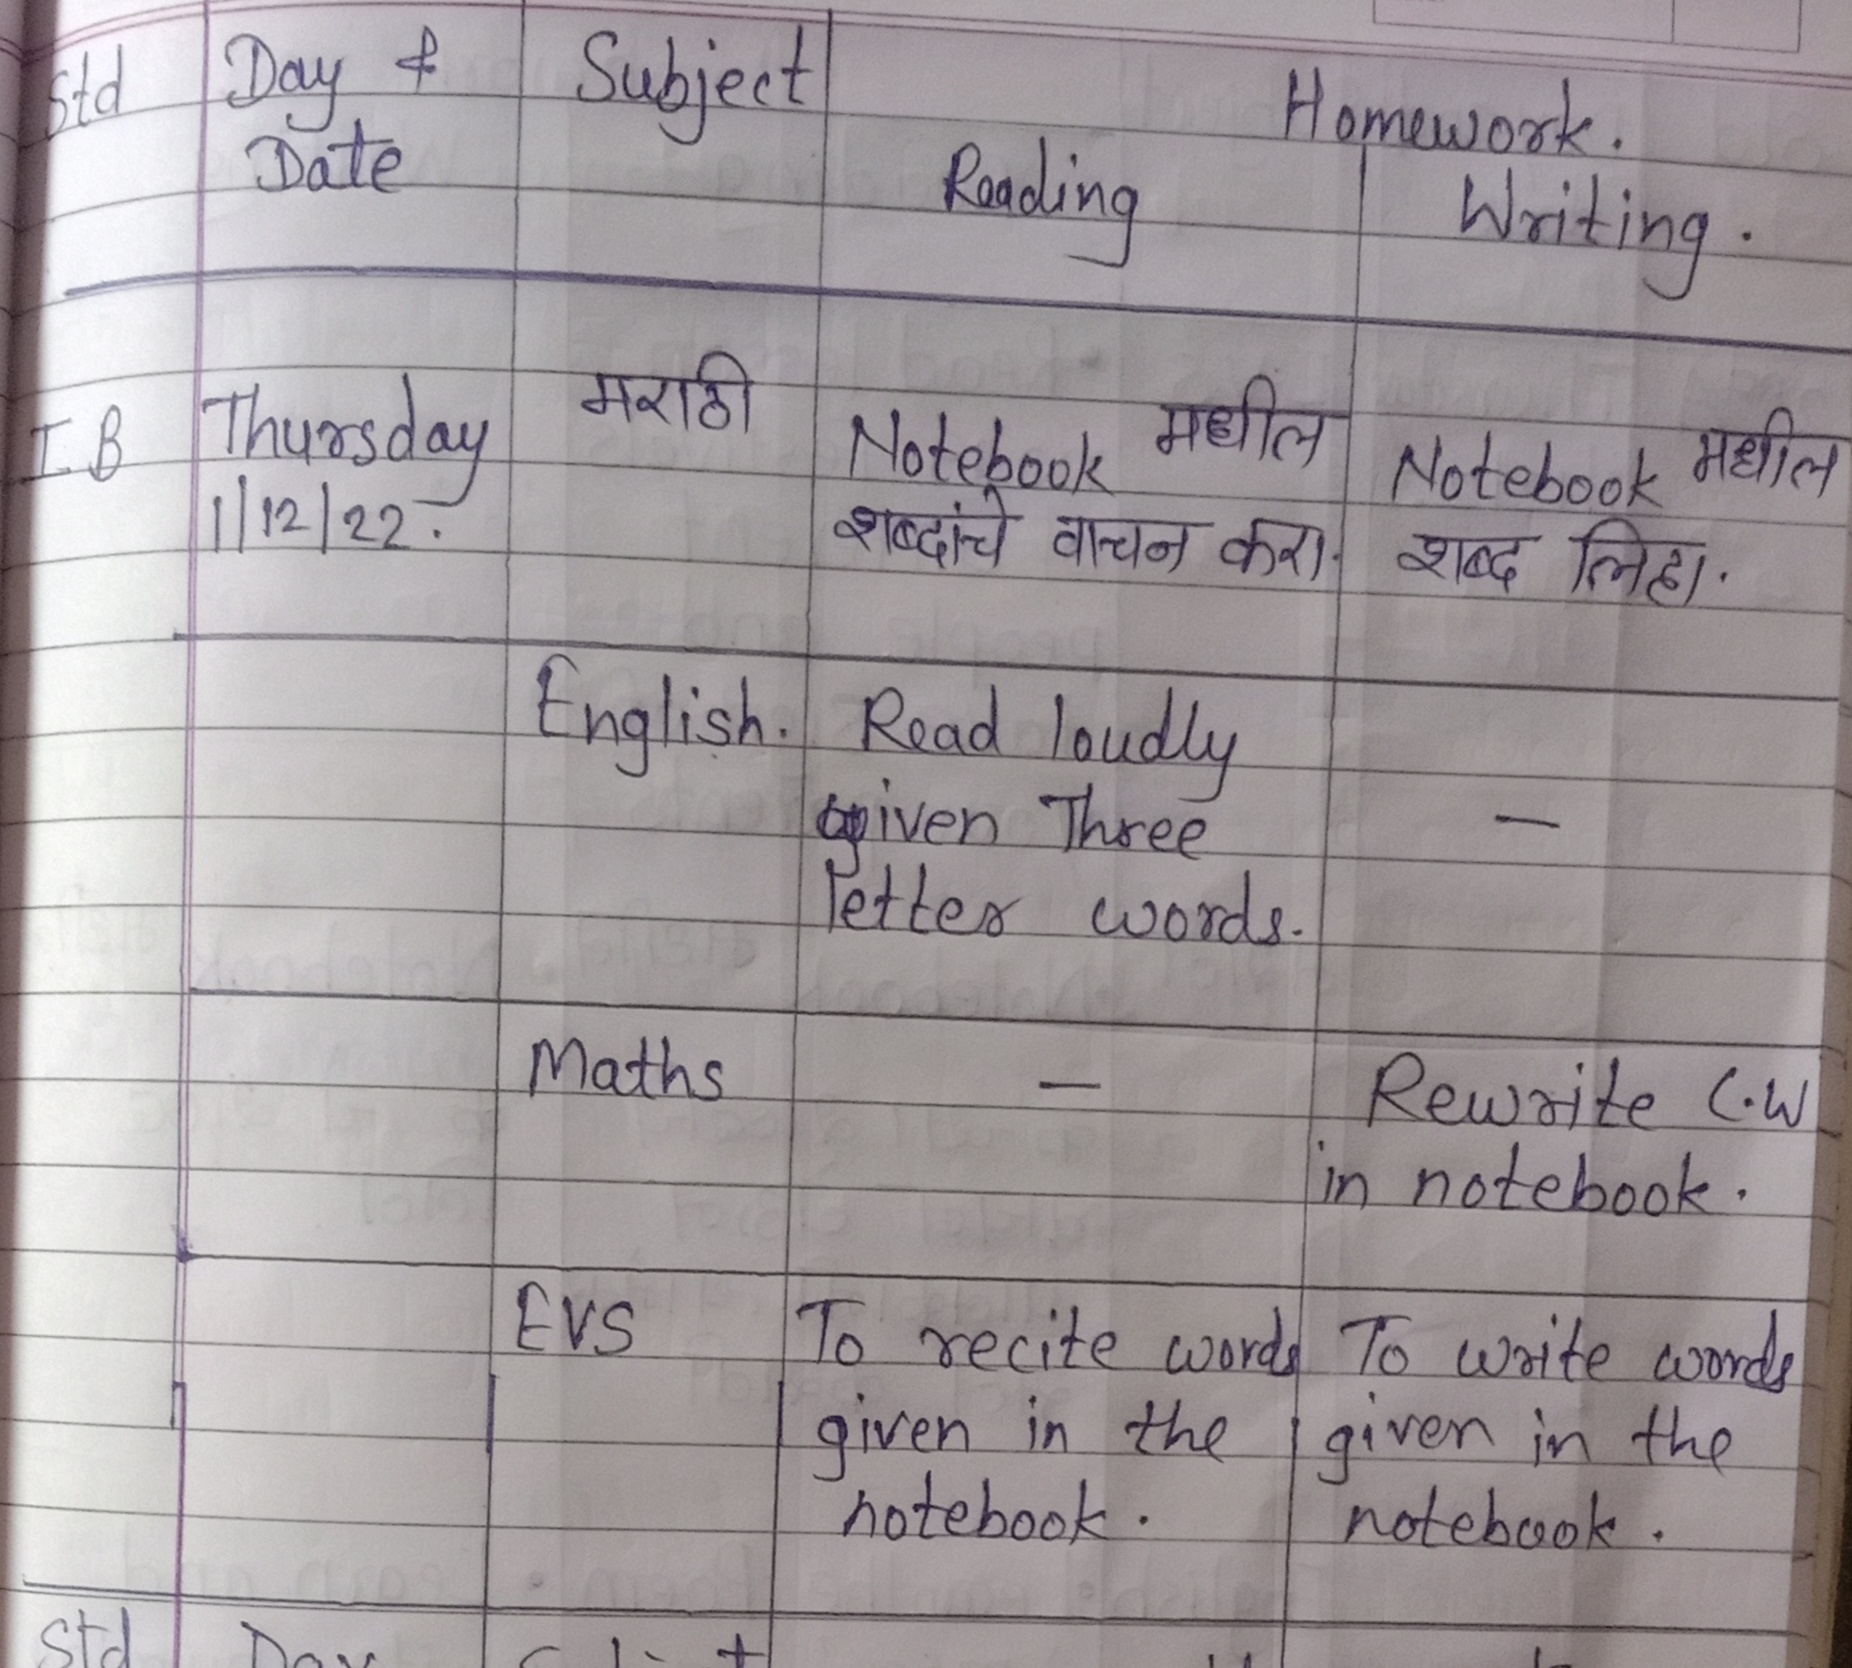 Std Day & Subject Homework.
Date Reading Writing.
I B Thursday मराठी Notebook मधील Notebook मधील
1/12/22. शब्दांचे वाचन करा. शब्द लिहा.
English. Read loudly
given Three —
letter words.
Maths — Rewrite C.W
in notebook.
EVS To recite words To write words
given in the given in the
notebook. notebook.
Std Day